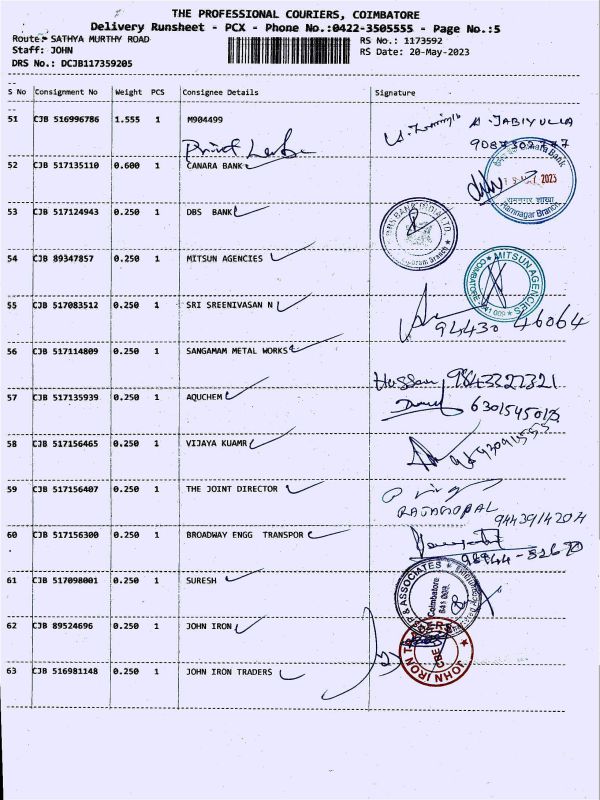 THE PROFESSIONAL COURIERS, COIMBATORE
Delivery Runsheet - PCX - Phone No.:0422-3505555 - Page No.:5
Route:- SATHYA MURTHY ROAD
RS No.: 1173592
Staff: JOHN
RS Date: 20-May-2023
DRS No.: DCJB117359205
S No Consignment No Weight PCS Consignee Details Signature
51 CJB 516996786 1.555 1 M904499
A. JABIYULLA
52 CJB 517135110 0.600 1 CANARA BANK
Canara Bank
2023
रामनगर शाखा
Ramnagar Branch
53 CJB 517124943 0.250 1 DBS BANK
DBS BANK INDIA LTD.
Branch
54 CJB 89347857 0.250 1 MITSUN AGENCIES
MITSUN AGENCIES
COIMBATORE
55 CJB 517083512 0.250 1 SRI SREENIVASAN N
94430 46064
56 CJB 517114809 0.250 1 SANGAMAM METAL WORKS
Hussain 9843322321
57 CJB 517135939 0.250 1 AQUCHEM
58 CJB 517156465 0.250 1 VIJAYA KUAMR
59 CJB 517156407 0.250 1 THE JOINT DIRECTOR
RAJAGOPAL
9443914204
60 CJB 517156300 0.250 1 BROADWAY ENGG TRANSPOR
98944-82670
61 CJB 517098001 0.250 1 SURESH
P & ASSOCIATES
Coimbatore
641 009.
62 CJB 89524696 0.250 1 JOHN IRON
63 CJB 516981148 0.250 1 JOHN IRON TRADERS
JOHN IRON TRADERS
CBE